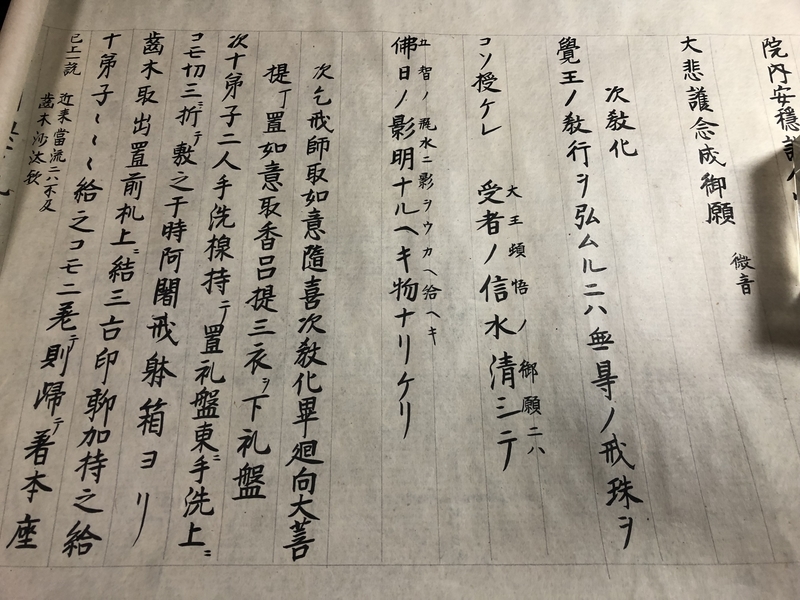 院内安穏
大悲護念成御願 微音
次教化
覺王ノ教行ヲ弘ムルニハ無㝵ノ戒珠ヲ
コソ授ケレ 受者ノ信水清シテ
大王頓悟ノ御願ニハ
佛日ノ影明ナルヘキ物ナリケリ
五智ノ瓶水ニ影ヲウカヘ給ヘキ
次乞戒師取如意隨喜次教化畢廻向大菩
提丁置如意取香呂提三衣ヲ下礼盤
次十弟子二人手洗楾持テ置礼盤東ニ手洗上ニ
コモ切三折テ敷之于時阿闍戒躰箱ヨリ
齒木取出置前机上ニ結三古印聊加持之給
十弟子〻〻〻給之コモニ
則帰テ着本座
已上一説 近来當流ニハ不及
齒木沙汰欤